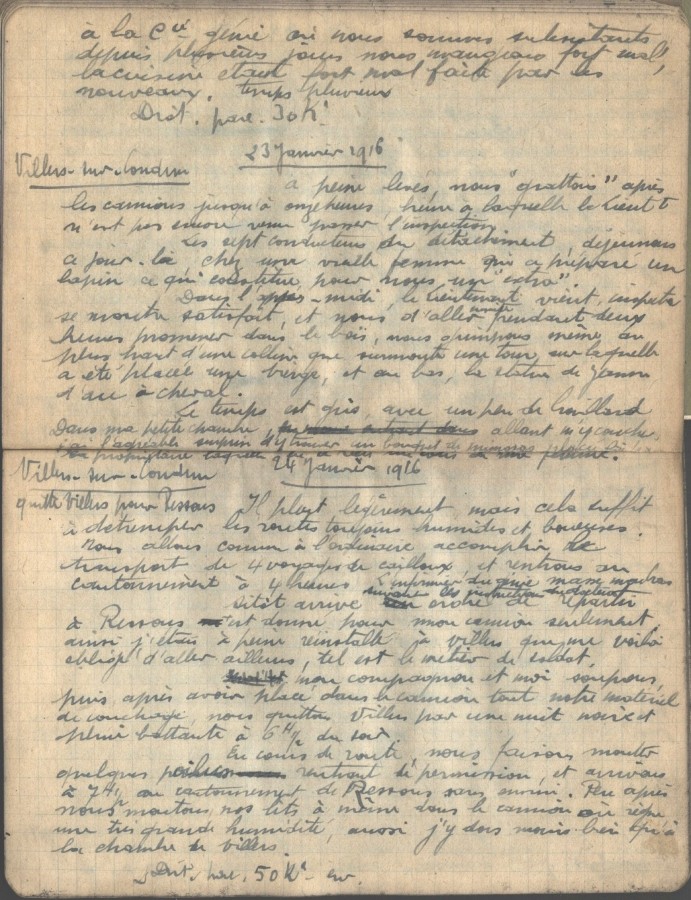 à la Cie génie où nous sommes subsistants
depuis plusieurs jours nous mangions fort mal,
la cuisine étant fort mal faite par les
nouveaux. temps pluvieux
Dist. parc. 30 K.
23 Janvier 1916
Villers-sur-Coudun
A peine levés, nous "grattons" après
les camions jusqu'à onze heures, heure à laquelle le Lieut t
n'est pas encore venu passer l'inspection.
Les sept conducteurs du détachement, déjeunons
ce jour-là chez une vieille femme qui a préparé un
lapin ce qui constitue pour nous un "extra".
Dans l'après-midi, le Lieutenant vient, inspecte
se montre satisfait, et nous d'aller ensuite pendant deux
heures promener dans le bois, nous grimpons même au
plus haut d'une colline que surmonte une tour, sur laquelle
a été placée une vierge, et au bas, la statue de Jeanne
d'arc à cheval.
Le temps est gris, avec un peu de brouillard
Dans ma petite chambre, allant m'y coucher
j'ai l'agréable surprise d'y trouver un bouquet de mimosas placé là
propriétaire
Villers-sur-Coudun 24 Janvier 1916
quitté Villers pour Ressons Il pleut légèrement, mais cela suffit
à détremper les routes toujours humides et boueuses.
Nous allons comme à l'ordinaire accomplir le
transport de 4 voyages de cailloux, et rentrons au
cantonnement à 4 heures
sitôt arrivé ordre de repartir
à Ressons est donné pour mon camion seulement,
ainsi j'étais à peine réinstallé à Villers que me voilà
obligé d'aller ailleurs, tel est le métier de soldat.
mon compagnon et moi soupons,
puis, après avoir placé dans le camion tout notre matériel
de couchage, nous quittons Villers par une nuit noire et
pluie battante à 6 H ½ du soir.
En cours de route, nous faisons monter
quelques poilus rentrant de permission, et arrivons
à 7 H ½ au cantonnement de Ressons sans ennui. Peu après
nous montons nos lits à même dans le camion où règne
une très grande humidité, aussi j'y dors moins bien qu'à
la chambre de Villers.
Dist. parc. 50 K. env.